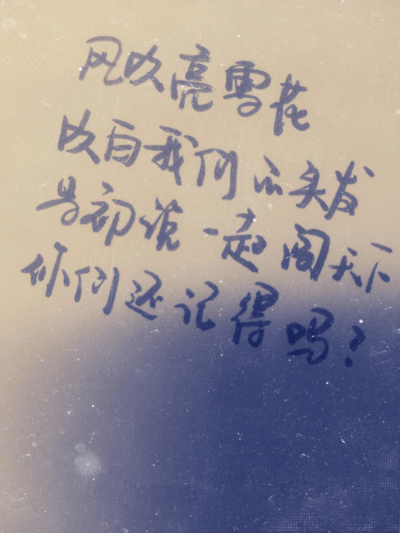 风吹亮雪花
吹白我们的头发
当初说一起闯天下
你们还记得吗?